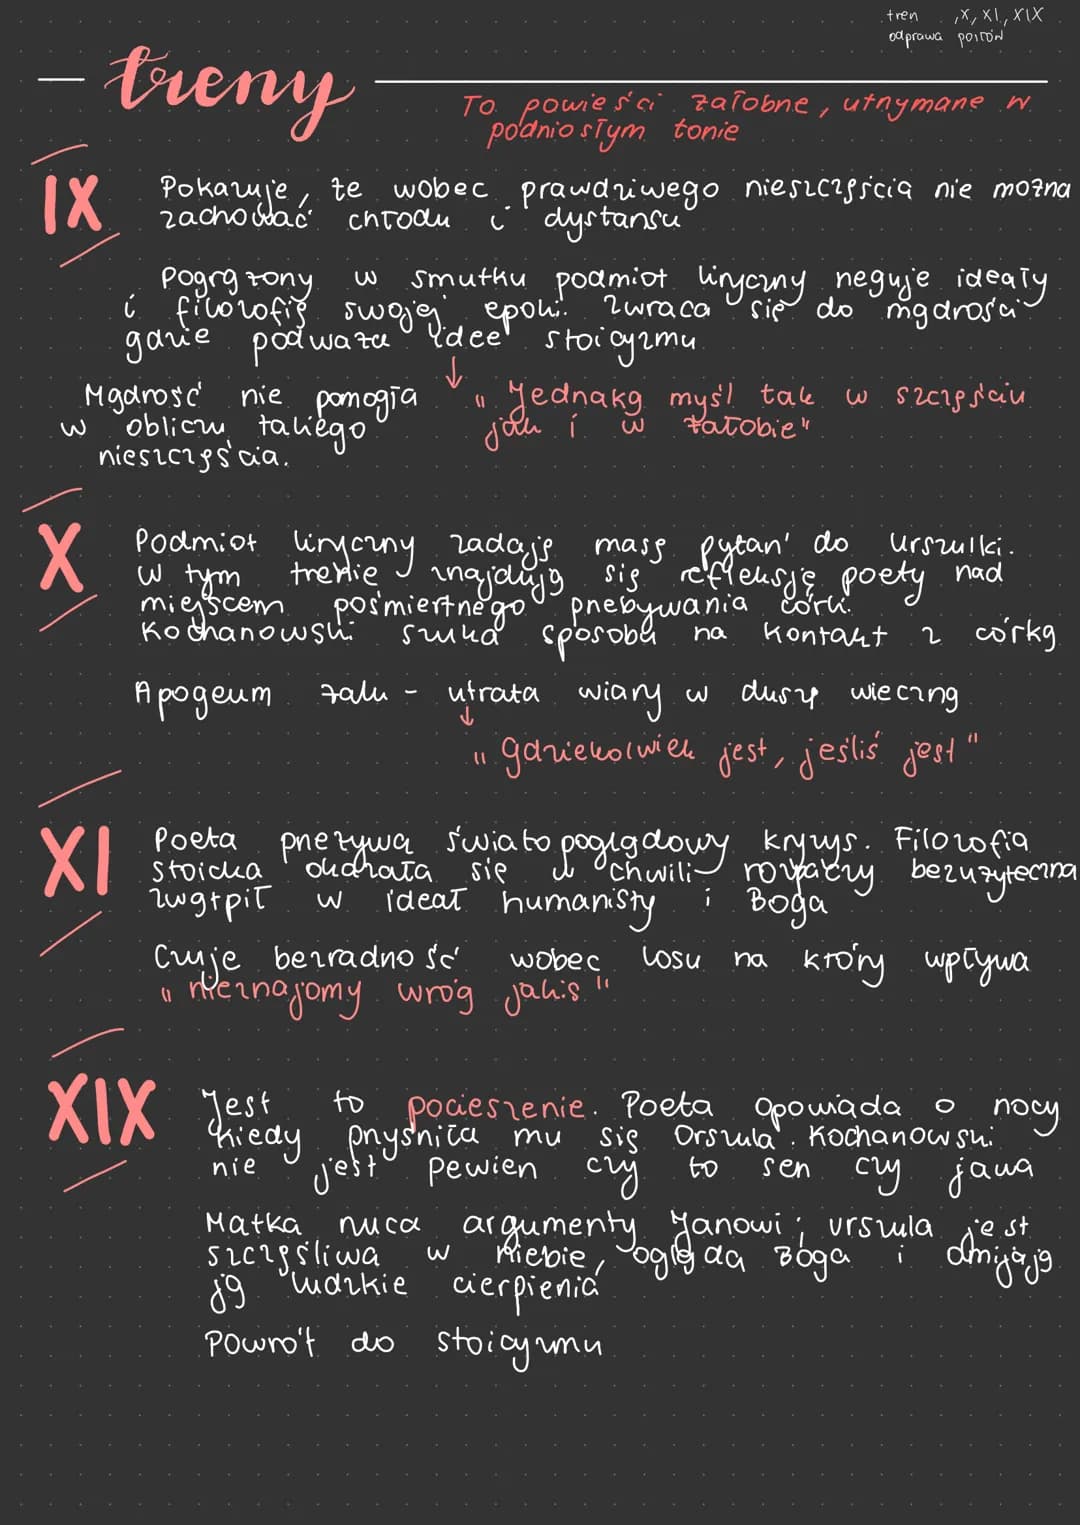 tren , X, XI, XIX
odprawa posłów
treny
To powieści żałobne, utrzymane w
podniosłym tonie
IX
Pokazuje, że wobec prawdziwego nieszczęścia nie można
zachować chłodu i dystansu
Pogrążony w smutku podmiot liryczny neguje ideały
i filozofię swojej epoki. Zwraca się do mądrości
gdzie podważa idee stoicyzmu
Mądrość nie pomogła
w obliczu takiego
nieszczęścia.
↓ "Jednaką myśl tak w szczęściu
jak i w żałobie"
X
Podmiot liryczny zadaję masę pytań do Urszulki.
W tym trenie znajdują się refleksję poety nad
miejscem pośmiertnego przebywania córki.
Kochanowski szuka sposobu na kontakt z córką
Apogeum żalu - utrata wiary w duszę wieczną
↓
"gdziekolwiek jest, jeśliś jest"
XI
Poeta przeżywa światopoglądowy kryzys. Filozofia
stoicka okazała się w chwili rozpaczy bezużyteczna
Zwątpił w ideał humanisty i Boga
Czuje bezradność wobec losu na który wpływa
"nieznajomy wróg jakis"
XIX
Jest to pocieszenie. Poeta opowiada o nocy
kiedy przyśniła mu się Orszula. Kochanowski
nie jest pewien czy to sen czy jawa
Matka ruca argumenty Janowi; urszula jest
szczęśliwa w niebie, ogląda Boga i omijają
ją ludzkie cierpienia
Powrót do stoicyzmu